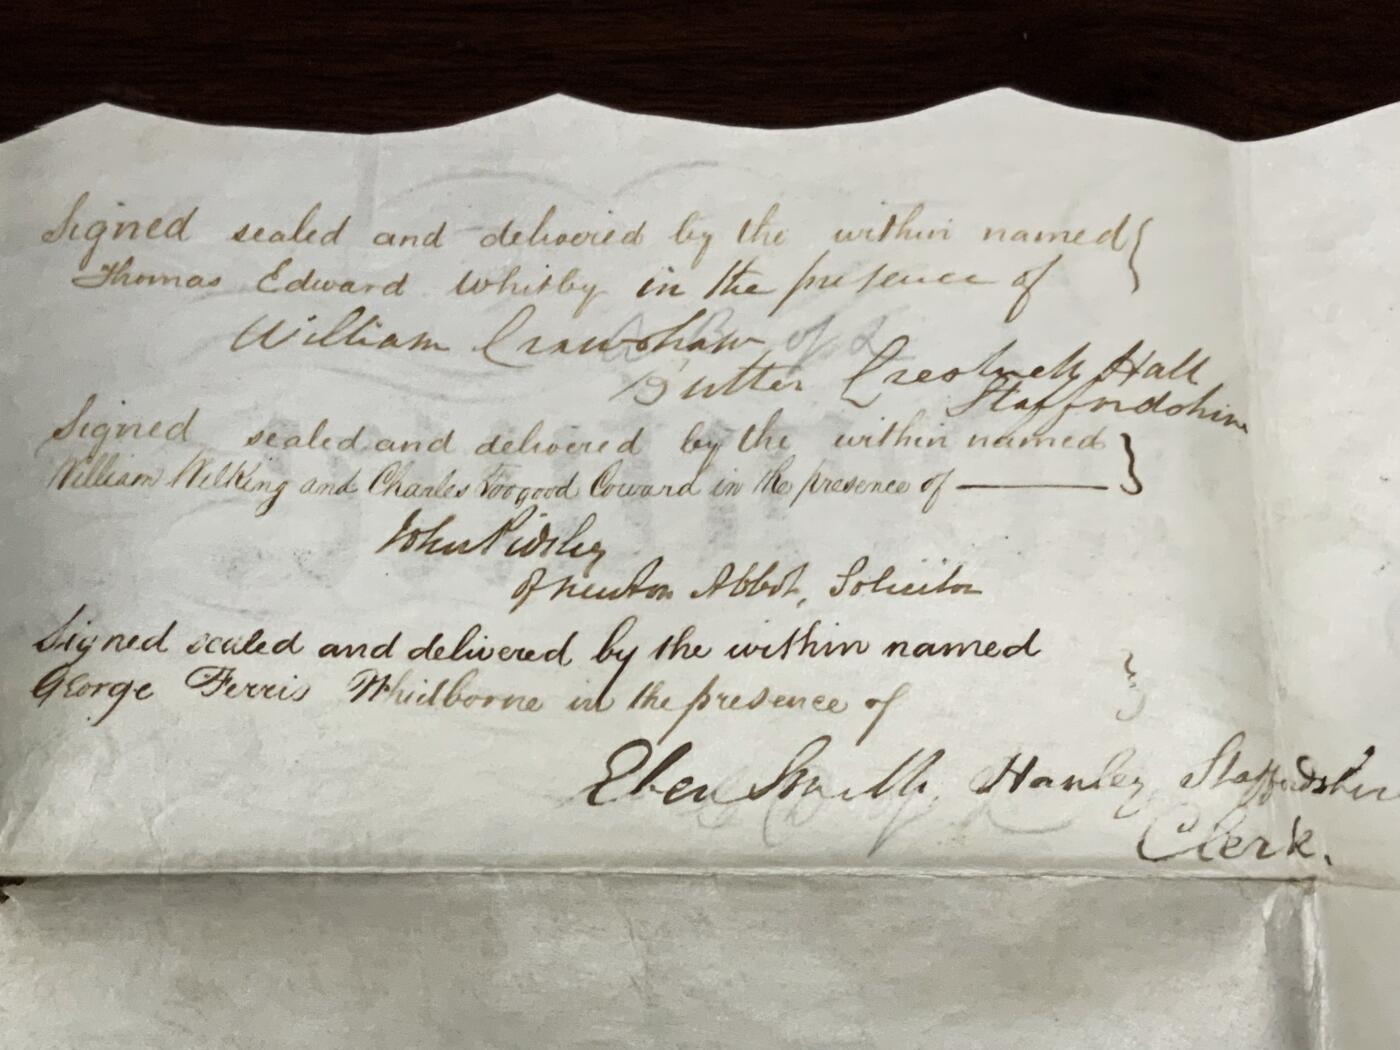 Signed sealed and delivered by the within named
Thomas Edward Whitby in the presence of
William Crawshaw
Butler Creswell Hall
Staffordshire
Signed sealed and delivered by the within named
William Wilking and Charles Toogood Coward in the presence of
John Pidsley
of Newton Abbot, Solicitor
Signed sealed and delivered by the within named
George Ferris Whidborne in the presence of
Eben Smith, Hanley, Staffordshire
Clerk.